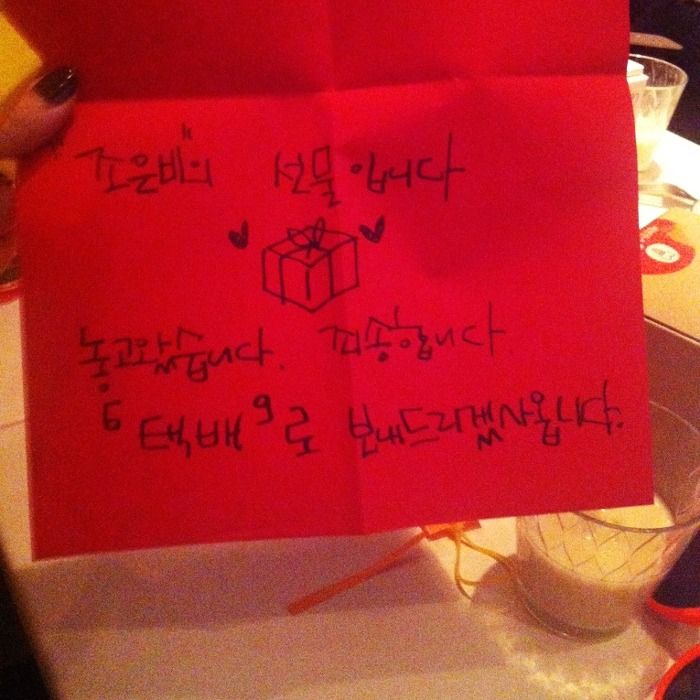 "조은비"의 선물입니다
놓고왔습니다. 죄송합니다
'택배'로 보내드리겠사옵니다.